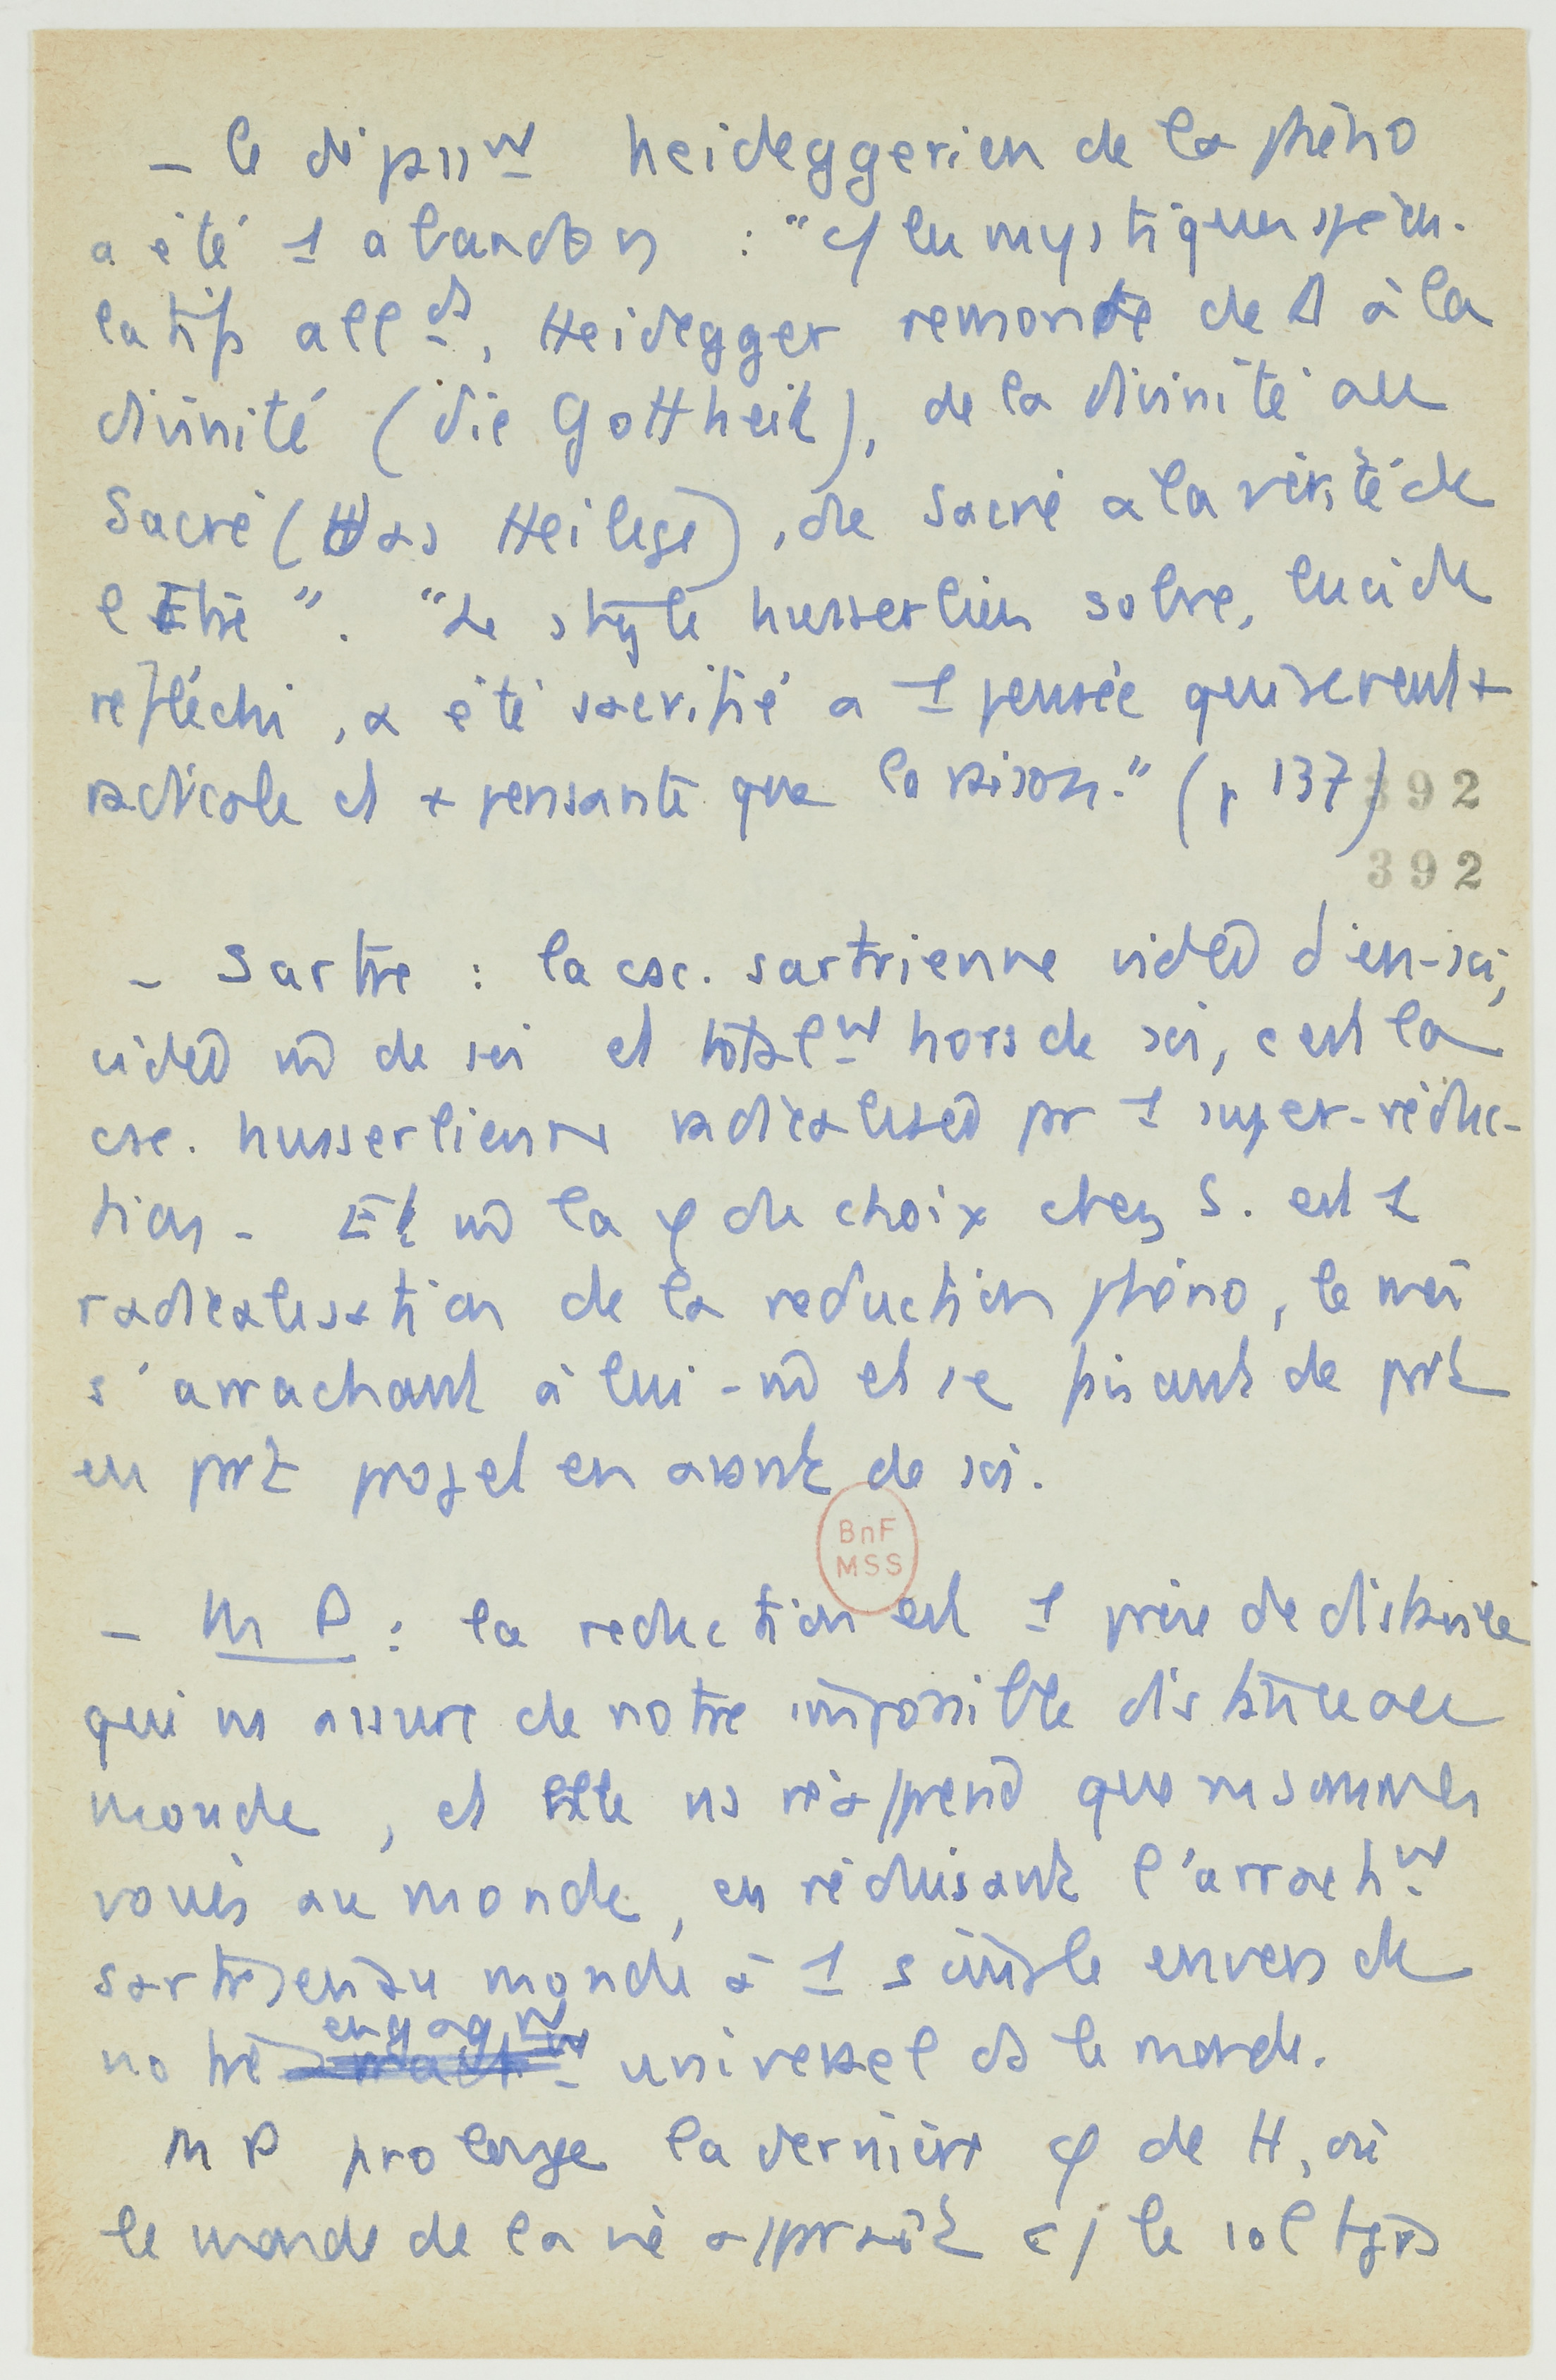 – le dépasst heideggerien de la phéno
a été 1 abandon : "c/ les mystiques spécu-
latifs allds, Heidegger remonte de Δ à la
divinité (die Gottheit), de la divinité au
Sacré (das Heilege), du Sacré à la vérité de
l'Etre". "Le style husserlien sobre, lucide
refléchi, a été sacrifié a 1 pensée qui se veut +
radicale et + pensante que la raison." (p 137)
392
392
– Sartre : la csc. sartrienne vided d'en-soi,
vided m̂ de soi et totalt hors de soi, c'est la
csc. husserlienne radicalised pr 1 super-réduc-
tion – Et m̂ la φ du choix chez S. est 1
radicalisation de la reduction phéno, le moi
s'arrachant à lui-m̂ et se faisant de part
en part projet en avant de soi.
BnF
MSS
– M P : la reduction est 1 prise de distance
qui ns assure de notre impossible distance au
monde, et elle ns réapprend que ns sommes
voués au monde, en réduisant l'arracht
sartrien au monde à 1 simple envers de
notre engagt universel ds le monde.
M P prolonge la dernière φ de H, où
le monde de la vie apparaît c/ le sol tjrs